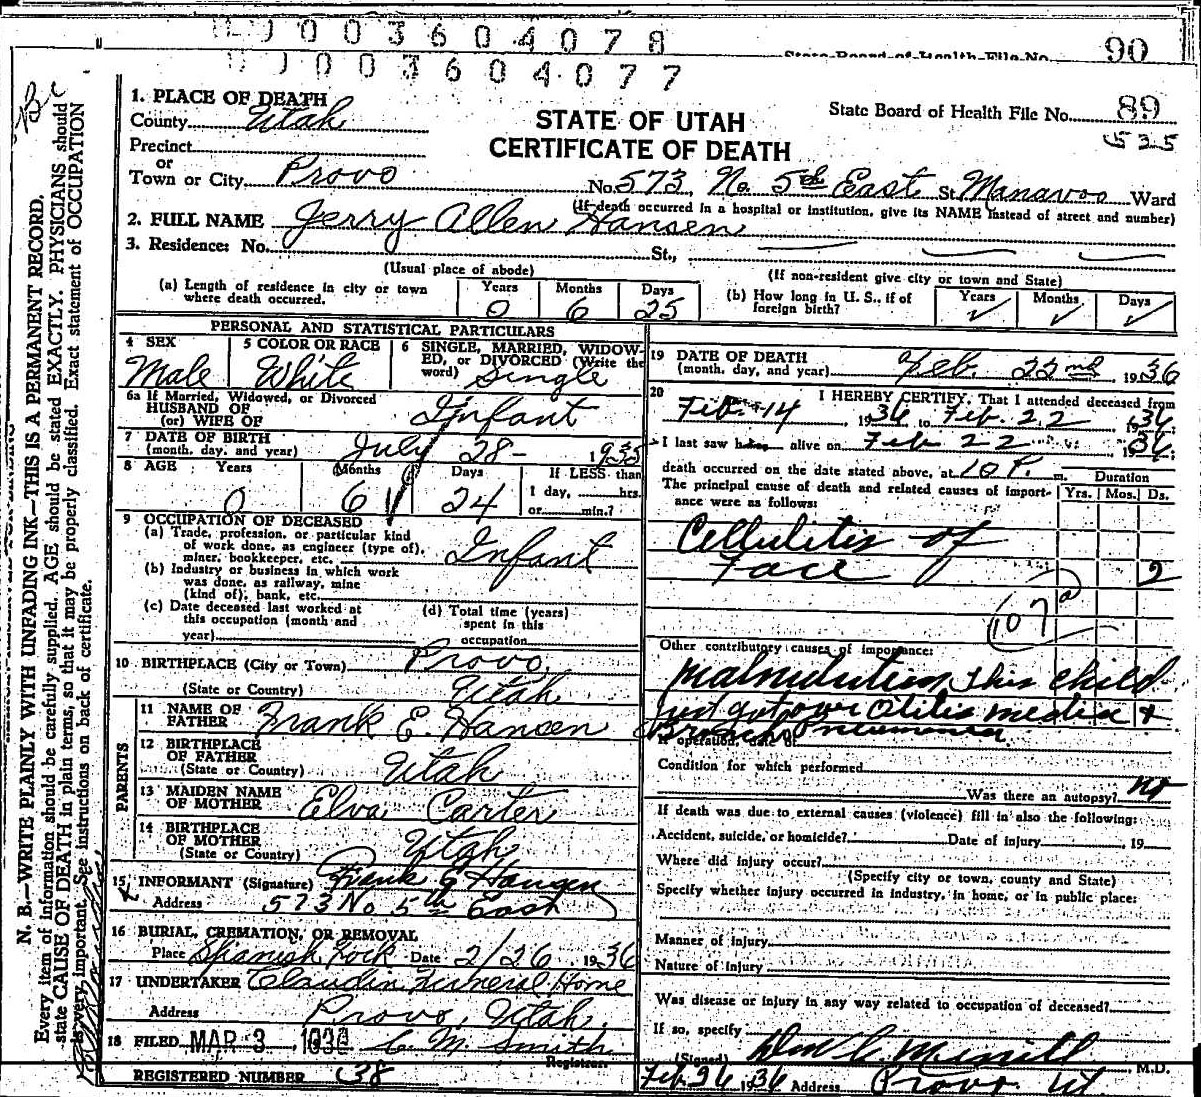 0 0 0 3 6 0 4 0 7 8
State Board of Health File No. 90
0 0 0 3 6 0 4 0 7 7
1. PLACE OF DEATH
State Board of Health File No. 89
County Utah
STATE OF UTAH
535
Precinct
CERTIFICATE OF DEATH
or
Town or City Provo No. 573 No. 5th East St. Manavoo Ward
(If death occurred in a hospital or institution, give its NAME instead of street and number)
2. FULL NAME Jerry Allen Hansen
3. Residence: No. St.,
(Usual place of abode) (If non-resident give city or town and State)
(a) Length of residence in city or town where death occurred. Years 0 Months 6 Days 25
(b) How long in U. S., if of foreign birth? Years ✓ Months ✓ Days ✓
PERSONAL AND STATISTICAL PARTICULARS
4 SEX Male
5 COLOR OR RACE White
6 SINGLE, MARRIED, WIDOWED, or DIVORCED (Write the word) Single
6a If Married, Widowed, or Divorced
HUSBAND OF
(or) WIFE OF Infant
7 DATE OF BIRTH
(month, day, and year) July 28- 1935
8 AGE Years 0 Months 6 Days 24 If LESS than
1 day, hrs.
or min.?
9 OCCUPATION OF DECEASED
(a) Trade, profession, or particular kind
of work done, as engineer (type of),
miner, bookkeeper, etc. Infant
(b) Industry or business in which work
was done, as railway, mine
(kind of), bank, etc.
(c) Date deceased last worked at
this occupation (month and
year)
(d) Total time (years)
spent in this
occupation
10 BIRTHPLACE (City or Town) Provo
(State or Country) Utah
PARENTS
11 NAME OF
FATHER Frank E. Hansen
12 BIRTHPLACE
OF FATHER
(State or Country) Utah
13 MAIDEN NAME
OF MOTHER Elva Carter
14 BIRTHPLACE
OF MOTHER
(State or Country) Utah
15 INFORMANT (Signature) Frank E Hansen
Address 573 No 5th East
16 BURIAL, CREMATION, OR REMOVAL
Place Spanish Fork Date 2/26 1936
17 UNDERTAKER Claudin Funeral Home
Address Provo, Utah.
18 FILED MAR 3 1936 C. M. Smith
Registrar.
REGISTERED NUMBER 38
19 DATE OF DEATH
(month, day, and year) Feb. 22nd 1936
20 I HEREBY CERTIFY, That I attended deceased from
Feb. 14 1936 to Feb. 22 1936
I last saw h alive on Feb 22 1936;
death occurred on the date stated above, at 10 P. m.
The principal cause of death and related causes of importance were as follows: Duration
Yrs. Mos. Ds.
Cellulitis of
Face 2
107a
Other contributory causes of importance:
Malnutrition this child
just got over Otitis media &
Broncho Pneumonia
If operation, date of
Condition for which performed
Was there an autopsy? no
If death was due to external causes (violence) fill in also the following:
Accident, suicide, or homicide? Date of injury 19
Where did injury occur?
(Specify city or town, county and State)
Specify whether injury occurred in industry, in home, or in public place:
Manner of injury
Nature of injury
Was disease or injury in any way related to occupation of deceased?
If so, specify
(Signed) Wm C. Merrill M.D.
Feb 26 1936 Address Provo Ut
N. B.—WRITE PLAINLY WITH UNFADING INK—THIS IS A PERMANENT RECORD.
Every item of information should be carefully supplied. AGE should be stated EXACTLY. PHYSICIANS should
state CAUSE OF DEATH in plain terms, so that it may be properly classified. Exact statement of OCCUPATION
is very important. See instructions on back of certificate.